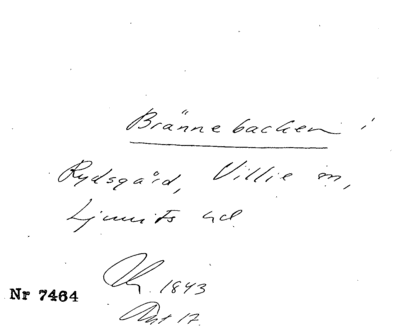 Brännebacken i
Rydsgård, Villie sn,
Ljunits hd.
1843
Nr 7464
17.